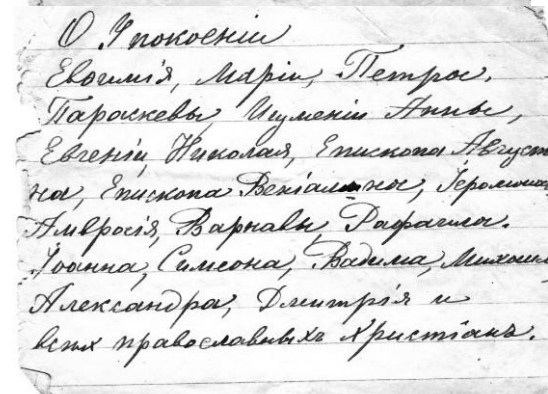 О Упокоеніи
Евѳимія, Маріи, Петра,
Параскевы, Игуменіи Анны,
Евгеніи, Николая, Епископа Августи
на, Епископа Веніамина, Іеромонах
Амвросія, Варнавы, Рафаила.
Іоанна, Симеона, Вадима, Михаил
Александра, Дмитрія и
всѣхъ православныхъ Христіанъ.